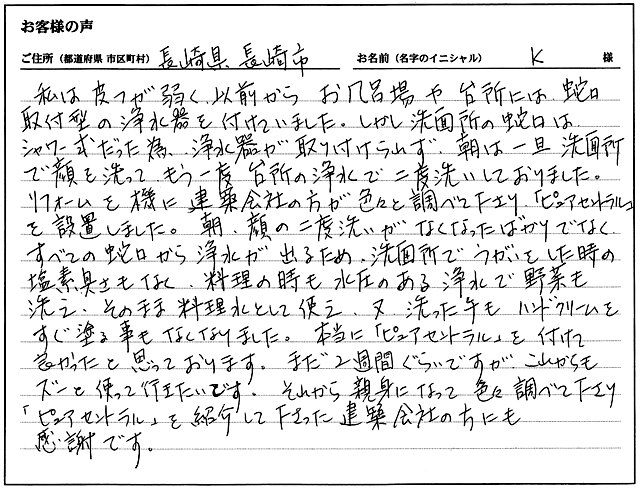 お客様の声
ご住所（都道府県 市区町村） 長崎県 長崎市 お名前（名字のイニシャル） K 様
私は皮フが弱く、以前から お風呂場や台所には、蛇口
取付型の浄水器を付けていました。しかし洗面所の蛇口は、
シャワー式だった為、浄水器が取り付けられず、朝は一旦洗面所
で顔を洗って、もう一度台所の浄水で二度洗いしておりました。
リフォームを機に建築会社の方が色々と調べて下さり、「ピュアセントラル」
を設置しました。朝、顔の二度洗いがなくなったばかりでなく
すべての蛇口から浄水が出るため、洗面所でうがいをした時の
塩素臭さもなく、料理の時も水圧のある浄水で野菜も
洗え、そのまま料理水として使え、又、洗った手もハンドクリームを
すぐ塗る事もなくなりました。本当に「ピュアセントラル」を付けて
良かったと思っております。まだ2週間ぐらいですが、これからも
ズーと使って行きたいです。それから親身になって色々調べて下さり
「ピュアセントラル」を紹介して下さった建築会社の方にも
感謝です。